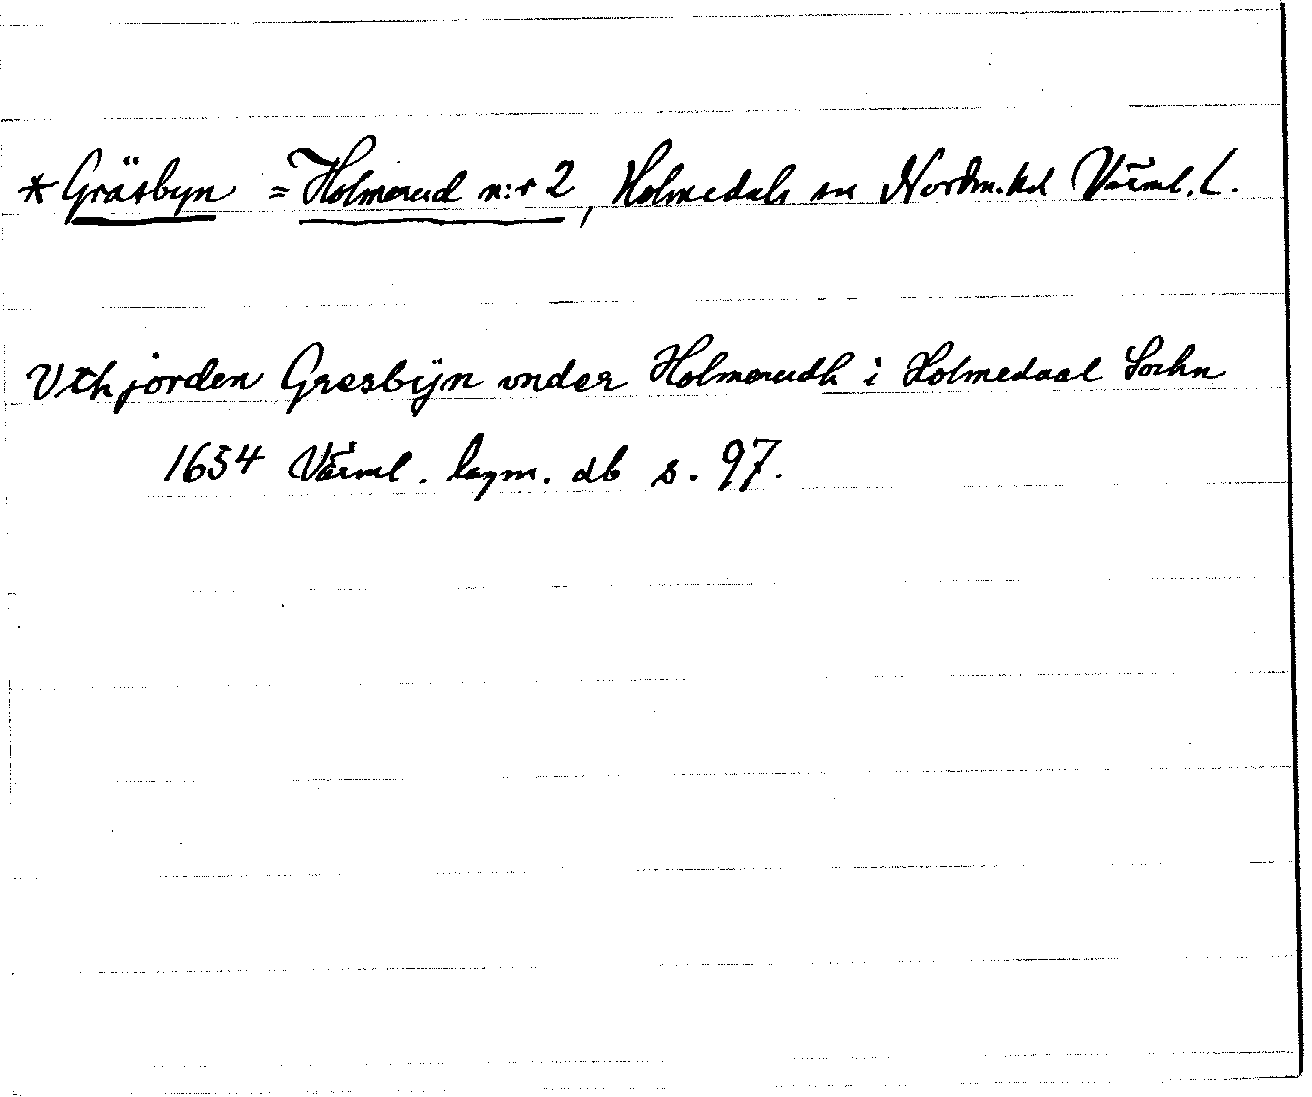 * Gräsbyn = Holmerud n:r 2, Holmedals sn Nordm. hd Värml. L.
Vthjorden Gresbÿn vnder Holmerudh i Holmedaal Sochn
1654 Värml. lagm. db s. 97.